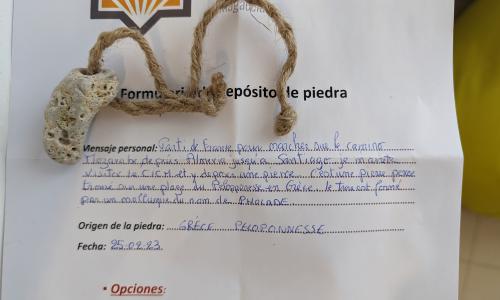 Formulario depósito de piedra
Mensaje personal: Parti de France pour marcher sur le camino
Mozarabe depuis Almeria jusqu'a Santiago je m'arrete
visiter le et y depose une pierre. C'est une pierre percée
trouvé sur une plage du Péloponnèse en Grèce. le trou est formé
par un mollusque du nom de PHOLADE
Origen de la piedra: GRÈCE PELOPONNESSE
Fecha: 25.02.23
• Opciones: